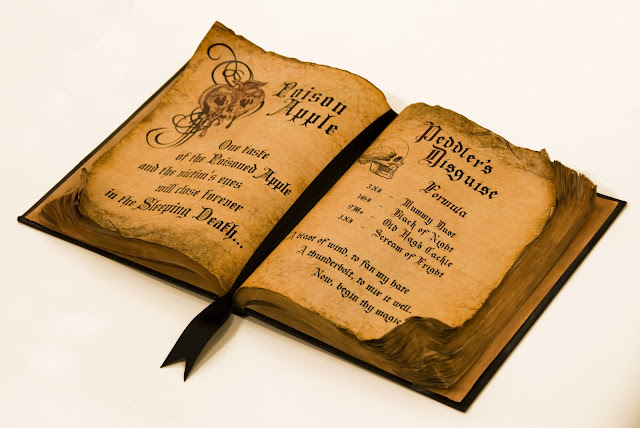 Poison
Apple
One taste
of the Poisoned Apple
and the victim's eyes
will close forever
in the Sleeping Death...
Peddler's
Disguise
Formula
- Mummy Dust
- Black of Night
- Old Hags Cackle
- Scream of Fright
A blast of wind, to fan my hate
A thunderbolt, to mix it well.
Now, begin thy magic